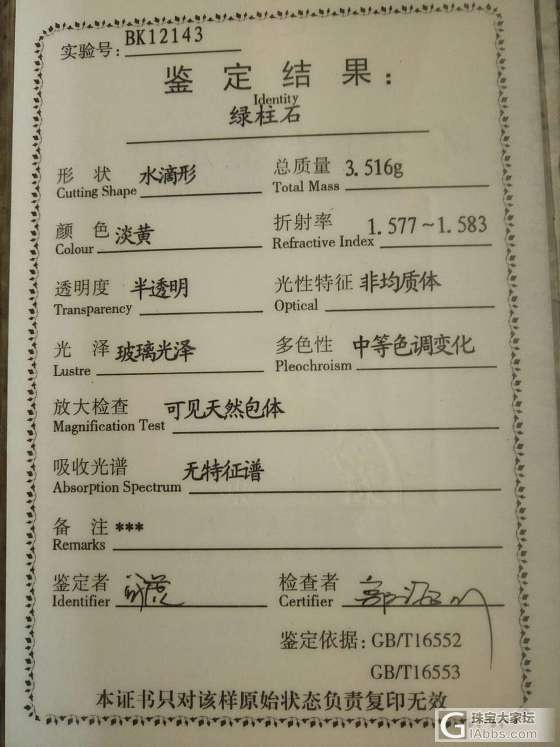 实验号: BK12143
鉴定结果:
Identity
绿柱石
形状 水滴形 总质量 3.516g
Cutting Shape Total Mass
颜色 淡黄 折射率 1.577~1.583
Colour Refractive Index
透明度 半透明 光性特征 非均质体
Transparency Optical
光泽 玻璃光泽 多色性 中等色调变化
Lustre Pleochroism
放大检查 可见天然包体
Magnification Test
吸收光谱 无特征谱
Absorption Spectrum
备注 ***
Remarks
鉴定者 检查者
Identifier Certifier
鉴定依据: GB/T16552
GB/T16553
本证书只对该样原始状态负责复印无效
珠宝大家坛
1Abbs.com